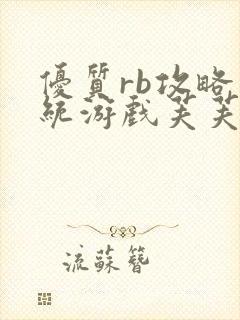 優質rb攻略
統游戲芙芙
流蘇簪